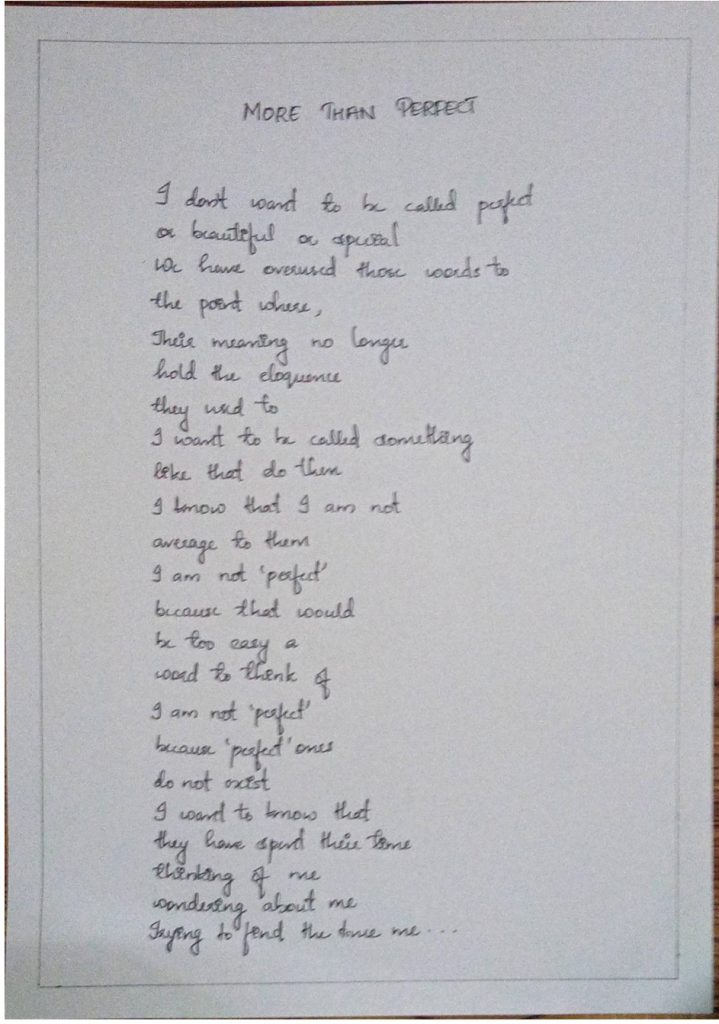 MORE THAN PERFECT
I don't want to be called perfect
or beautiful or special
We have overused those words to
the point where,
Their meaning no longer
hold the eloquence
they used to
I want to be called something
like that do then
I know that I am not
average to them
I am not 'perfect'
because that would
be too easy a
word to think of
I am not 'perfect'
because 'perfect' ones
do not exist
I want to know that
they have spent their time
thinking of me
wondering about me
Trying to find the true me...